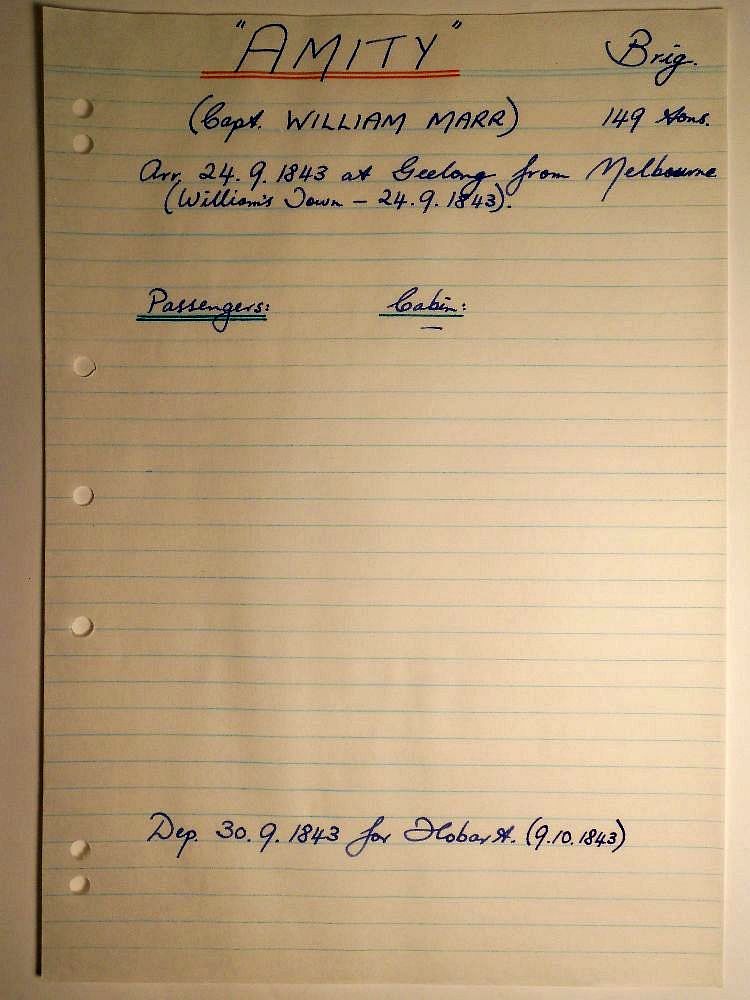 "AMITY" Brig.
(Capt. WILLIAM MARR) 149 tons.
Arr. 24.9.1843 at Geelong from Melbourne
(William's Town - 24.9.1843).
Passengers: Cabin:
—
Dep. 30.9.1843 for Hobart. (9.10.1843)